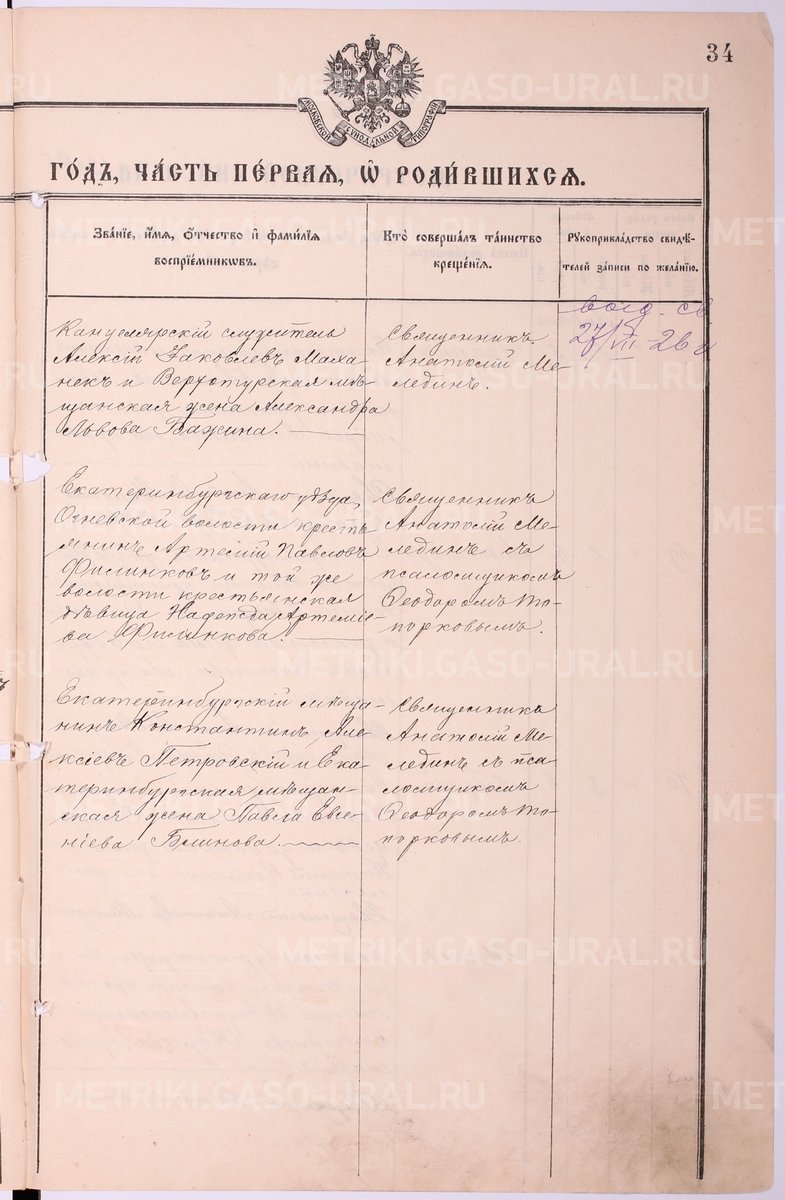 34
МОСКОВСКОЙ СѴНОДАЛЬНОЙ ТИПОГРАФІИ
ГО́ДЪ, ЧА́СТЬ ПЕ́РВАЯ, Ѽ РОДИ́ВШИХСЯ.
Зва́нїе, и҆́мя, ѻ҆́тчество и҆ фами́лїя
воспрїе́мникѡвъ.
Кто̀ соверша́лъ та́инство
креще́нїя.
Рꙋкоприкла́дство свидѣ́-
телей за́писи по жела́нїю.
выд. св
27/VII 26 г
Канцелярскій служитель
Алексій Іаковлевъ Маха-
некъ и Верхотурская мѣ-
щанская жена Александра
Львова Бажина.
Священникъ
Анатолій Ме-
лединъ.
Екатеринбургскаго уѣзда,
Огневской волости кресть
янинъ Артемій Павловъ
Филинковъ и той же
волости крестьянская
дѣвица Надежда Артеміе-
ва Филинкова.
Священникъ
Анатолій Ме-
лединъ съ
псаломщикомъ
Ѳеодоромъ То-
порковымъ.
Екатеринбургскій мѣща-
нинъ Константинъ Але-
ксіевъ Петровскій и Ека-
теринбургская мѣщан-
ская жена Павла Евге-
ніева Блинова.
Священникъ
Анатолій Ме-
лединъ съ пса-
ломщикомъ
Ѳеодоромъ То-
порковымъ.
METRIKI.GASO-URAL.RU